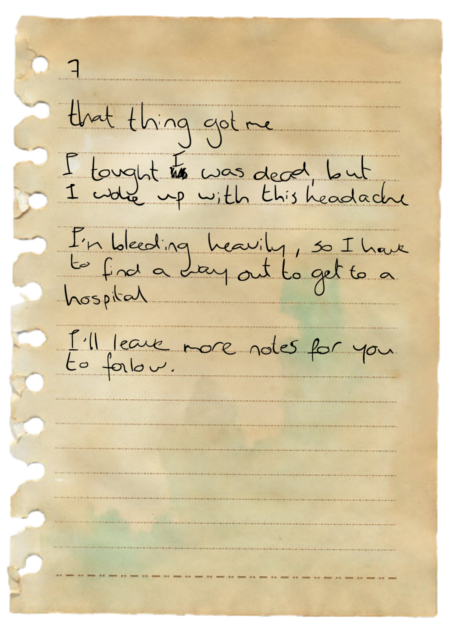 7
that thing got me
I tought I was dead, but
I woke up with this headache
I'm bleeding heavily, so I have
to find a way out to get to a
hospital
I'll leave more notes for you
to follow.